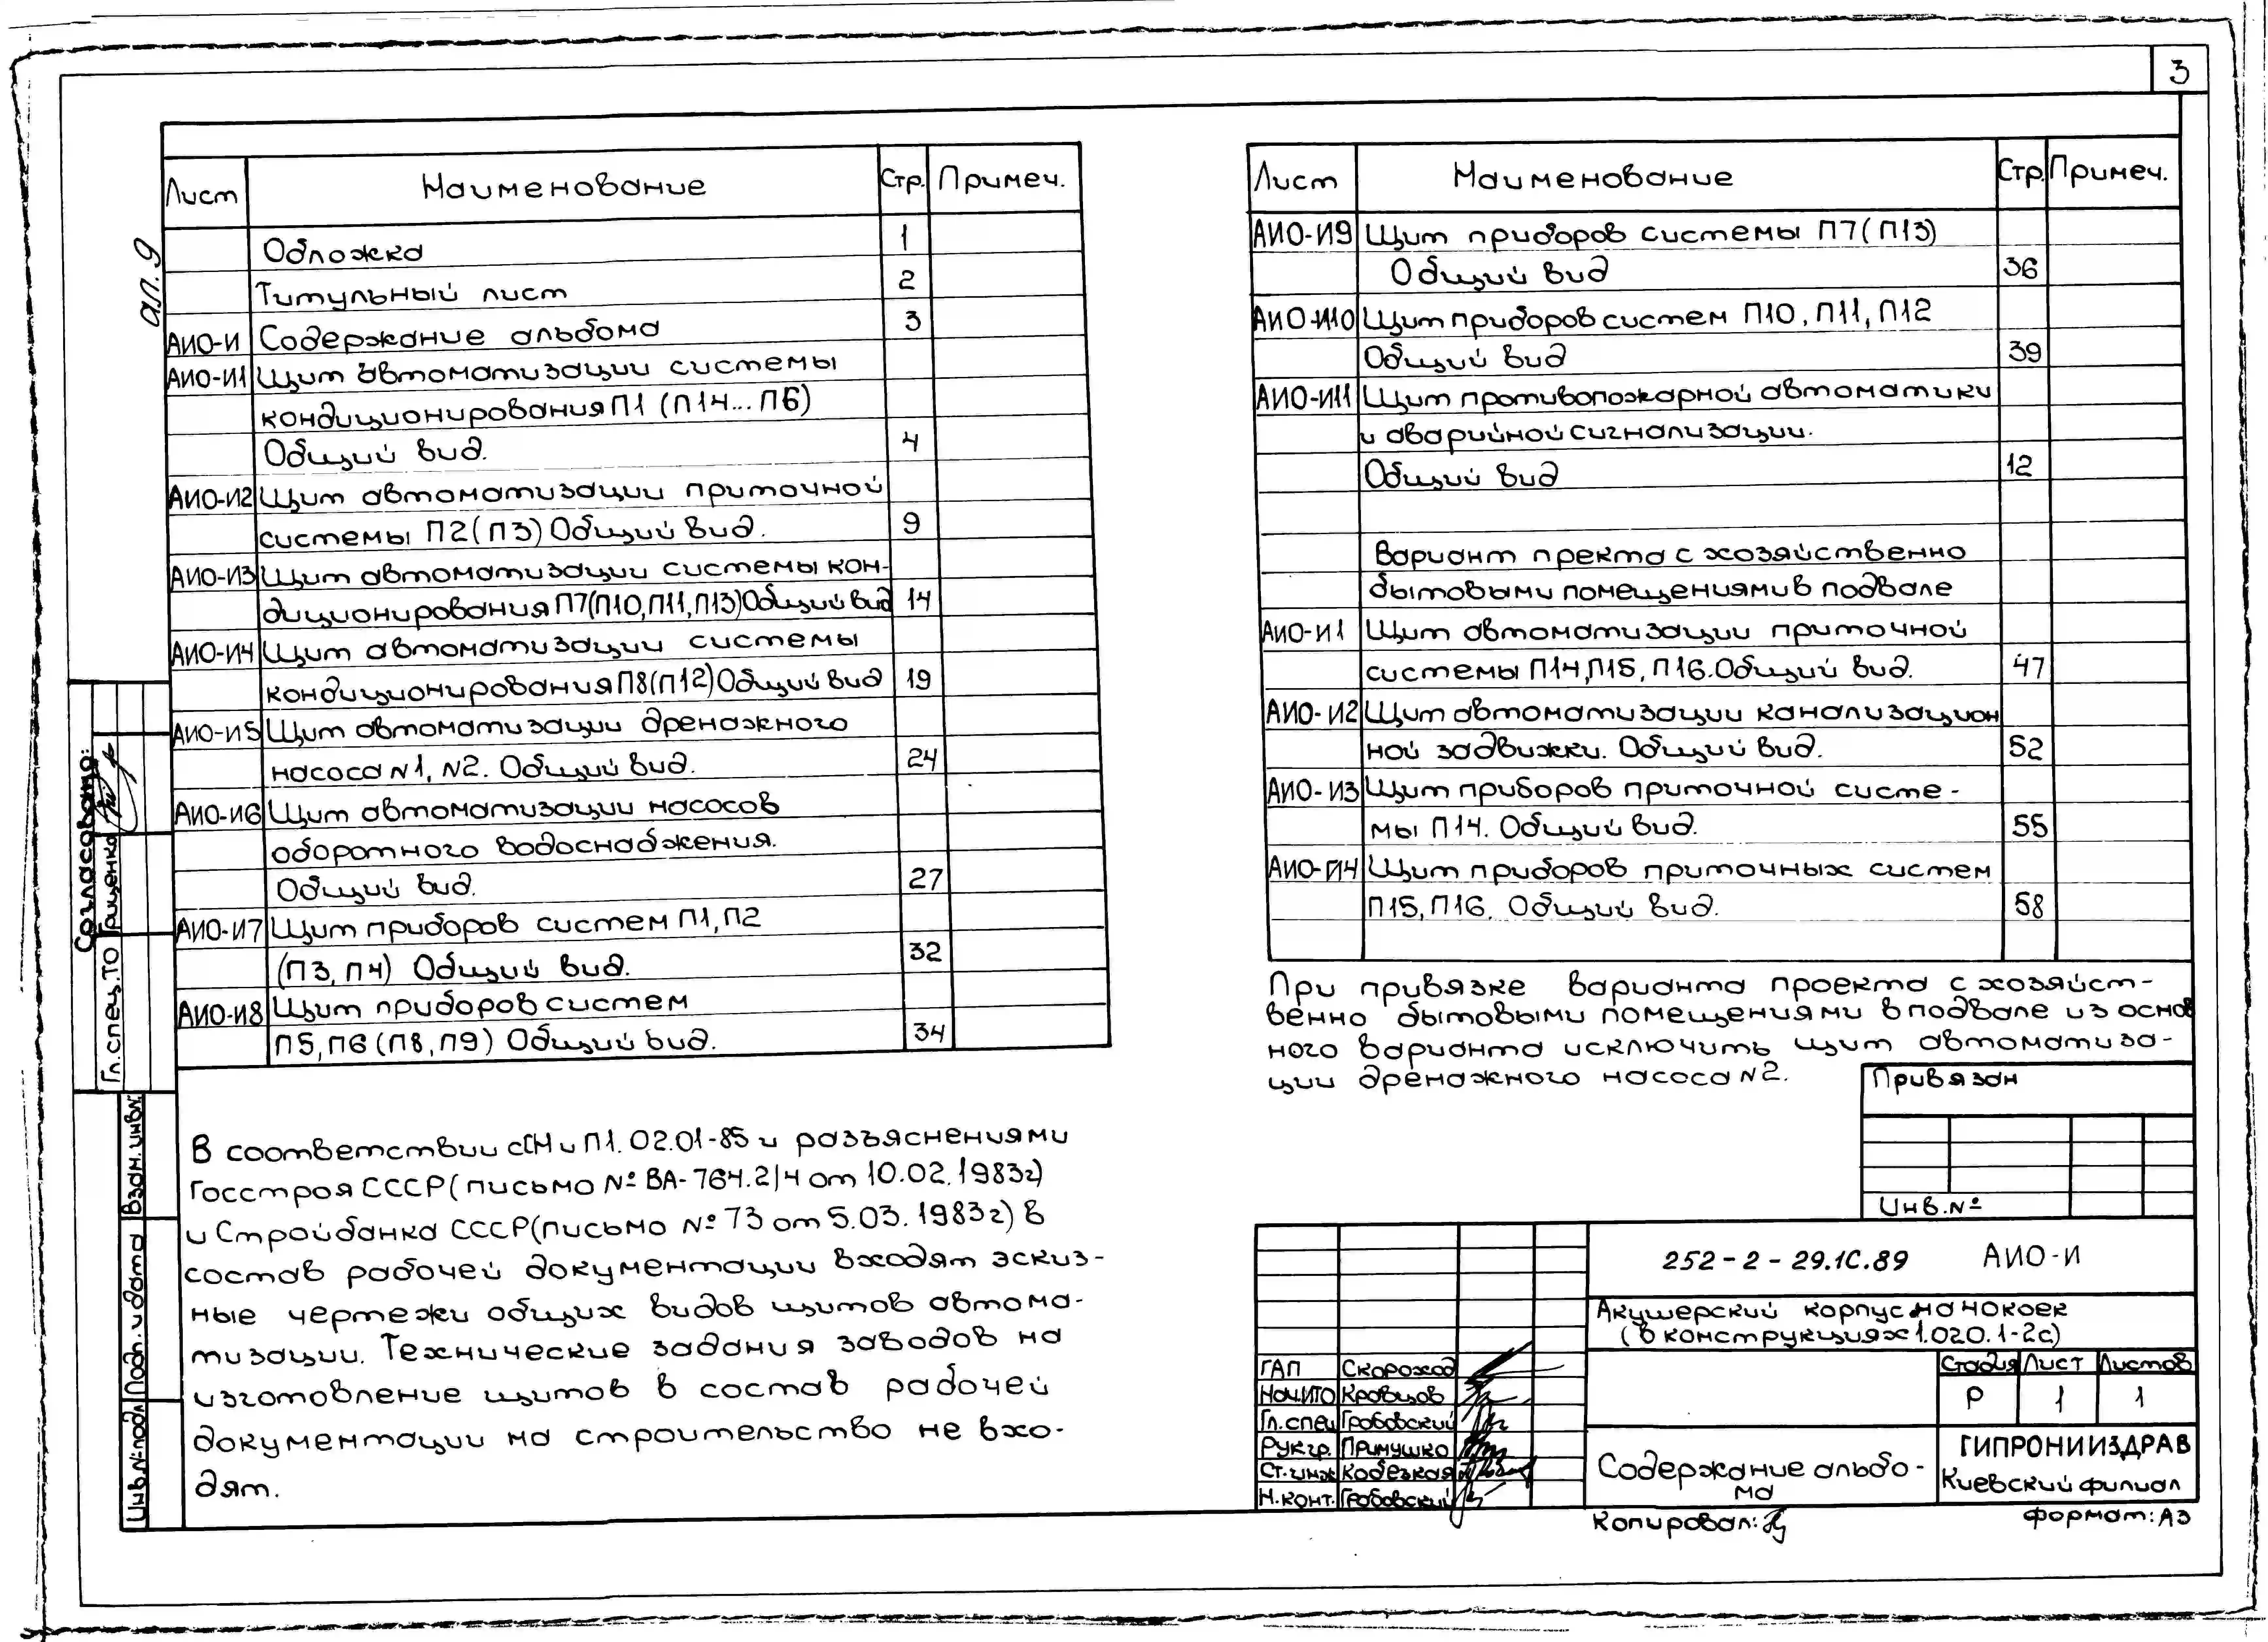 3
ал. 9
Лист Наименование Стр. Примеч.
Обложка 1
Титульный лист 2
АИО-И Содержание альбома 3
АИО-И1 Щит автоматизации системы
кондиционирования П1 (П14...П6)
Общий вид. 4
АИО-И2 Щит автоматизации приточной
системы П2(П3) Общий вид. 9
АИО-И3 Щит автоматизации системы кон-
диционирования П7(П10,П11,П13)Общий вид 14
АИО-И4 Щит автоматизации системы
кондиционирования П8(П12)Общий вид 19
АИО-И5 Щит автоматизации дренажного
насоса N1, N2. Общий вид. 24
АИО-И6 Щит автоматизации насосов
оборотного водоснабжения.
Общий вид. 27
АИО-И7 Щит приборов систем П1, П2
(П3, П4) Общий вид. 32
АИО-И8 Щит приборов систем
П5, П6 (П8, П9) Общий вид. 34
В соответствии сСНиП1.02.01-85 и разъяснениями
Госстроя СССР (письмо № ВА-764.2/4 от 10.02.1983г)
и Стройбанка СССР(письмо № 73 от 5.03.1983г) в
состав рабочей документации входят эскиз-
ные чертежи общих видов щитов автома-
тизации. Технические задания заводов на
изготовление щитов в состав рабочей
документации на строительство не вхо-
дят.
Лист Наименование Стр. Примеч.
АИО-И9 Щит приборов системы П7(П13)
Общий вид 36
АИО-И10 Щит приборов систем П10, П11, П12
Общий вид 39
АИО-И11 Щит противопожарной автоматики
и аварийной сигнализации.
Общий вид 12
Вариант пректа с хозяйственно
бытовыми помещениями в подвале
АИО-И1 Щит автоматизации приточной
системы П14, П15, П16. Общий вид. 47
АИО-И2 Щит автоматизации канализацион
ной задвижки. Общий вид. 52
АИО-И3 Щит приборов приточной систе-
мы П14. Общий вид. 55
АИО-И4 Щит приборов приточных систем
П15, П16. Общий вид. 58
При привязке варианта проекта с хозяйст-
венно бытовыми помещениями в подвале из основ
ного варианта исключить щит автоматиза-
ции дренажного насоса N2.
Привязан
Инв.№
252-2-29.1С.89 АИО-И
Акушерский корпус на 40коек
(в конструкциях 1.020.1-2с)
Стадия Лист Листов
Р 1 1
ГАП Скороход
Нач.ИТО Кравцов
Гл.спец Грабовский
Рук.гр. Примушко
Ст.инж Кобезкая
Н.конт. Грабовский
Содержание альбо-
ма
ГИПРОНИИЗДРАВ
Киевский филиал
Копировал:
Формат: А3
Согласовано:
Гл.спец.ТО Грищенко
Взам. инв.N
Подп. и дата
Инв.N подл